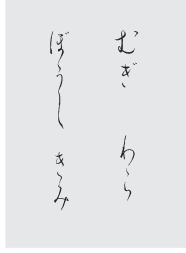 むぎ わら
ぼうし きみ